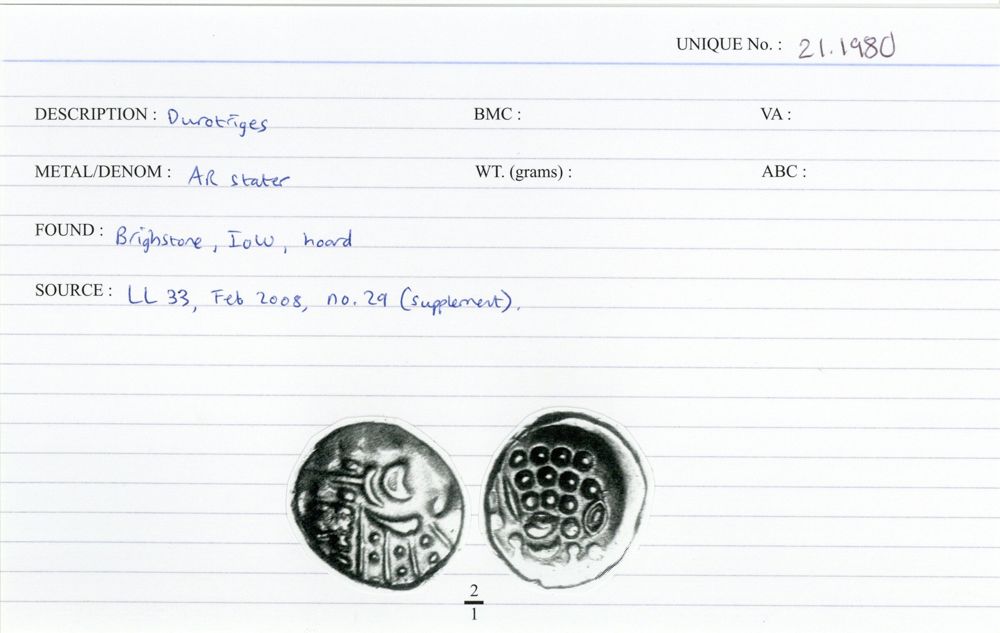 UNIQUE No. : 21.1980
DESCRIPTION : Durotriges BMC : VA :
METAL/DENOM : AR stater WT. (grams) : ABC :
FOUND : Brighstone, IoW, hoard
SOURCE : LL 33, Feb 2008, no. 29 (supplement).
2
1